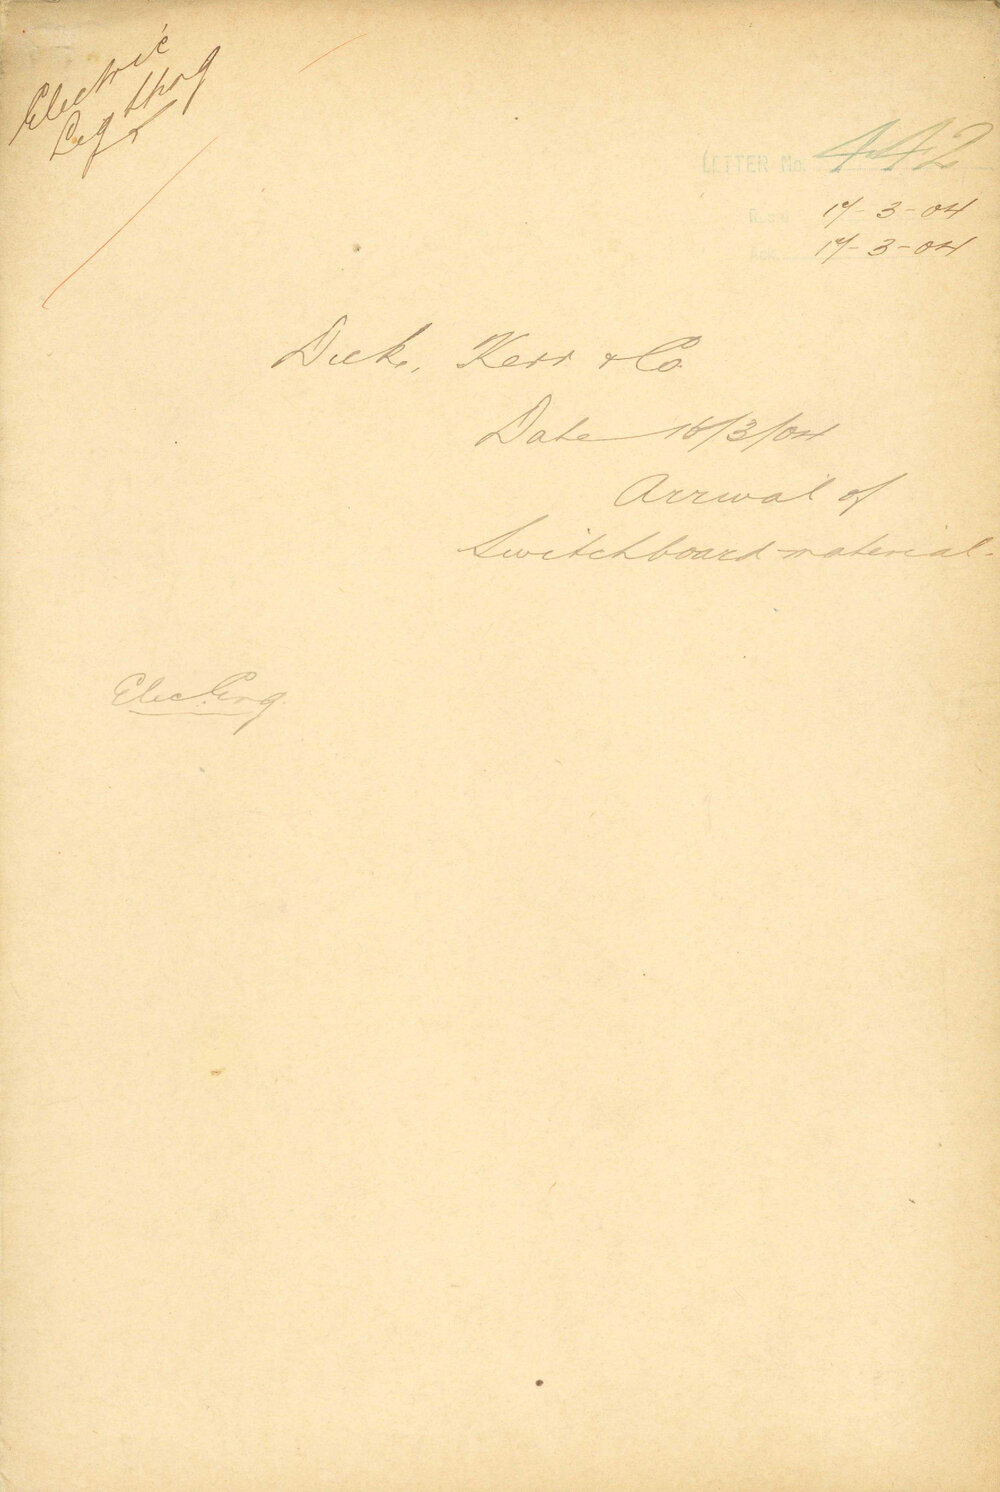 Electric
Lightng
LETTER No. 442
Rec'd 17-3-04
Ack. 17-3-04
Dick, Kerr & Co.
Date 16/3/04
Arrival of
Switchboard material.
Elec. Eng.